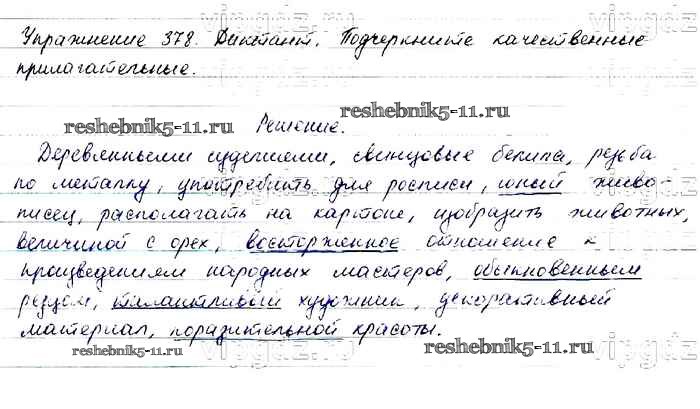 vipgdz.ru
Упражнение 378. Диктант. Подчеркните качественные
прилагательные.
reshebnik5-11.ru
reshebnik5-11.ru
Решение.
Деревянными изделиями, свинцовые белила, резьба
по металлу, употреблять для росписи, юный живо-
писец, располагать на картоне, изобразить животных,
величиной с орех, восторженное отношение к
произведениям народных мастеров, обыкновенным
резцом, талантливый художник, декоративный
материал, поразительной красоты.
reshebnik5-11.ru
vipgdz.ru
reshebnik5-11.ru
vipgdz